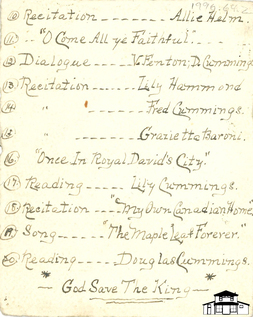 ⑩ Recitation _______ Allie Helm.
⑪ .. "O Come All ye Faithful" ...
⑫ Dialogue _____ V. Fenton; D. Cummings
⑬ Recitation _____ Lily Hammond
⑭ " _____ Fred Cummings.
⑮ " ____ Grazietta Baroni.
⑯ "Once In Royal David's City."
⑰ Reading _____ Lily Cummings.
⑱ Recitation ____ "My Own Canadian Home"
⑲ Song _____ "The Maple Leaf Forever."
⑳ Reading ____ Douglas Cummings.
* — God Save The King — *